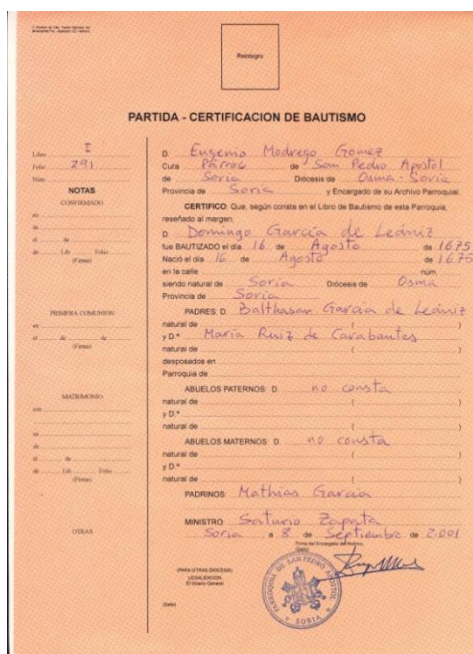 Reintegro
PARTIDA - CERTIFICACION DE BAUTISMO
Libro I
Folio 291
Núm.
NOTAS
CONFIRMADO
en
de
el de
de Lib. Folio
(Firma)
PRIMERA COMUNION
en
el de de
(Firma)
MATRIMONIO
con
en
de
el de
de Lib. Folio
(Firma)
OTRAS
D. Eugenio Modrego Gomez
Cura Párroco de San Pedro Apostol
de Soria Diócesis de Osma-Soria
Provincia de Soria y Encargado de su Archivo Parroquial.
CERTIFICO: Que, según consta en el Libro de Bautismo de esta Parroquia,
reseñado al margen,
D. Domingo García de Leániz
fue BAUTIZADO el día 16 de Agosto de 1675
Nació el día 16 de Agosto de 1675
en la calle núm.
siendo natural de Soria Diócesis de Osma
Provincia de Soria
PADRES: D. Balthasar García de Leániz
natural de ( )
y D.ª María Ruiz de Carabantes
natural de ( )
desposados en
Parroquia de
ABUELOS PATERNOS: D. no consta
natural de ( )
y D.ª
natural de ( )
ABUELOS MATERNOS: D. no consta
natural de ( )
y D.ª
natural de ( )
PADRINOS: Mathias García
MINISTRO: Saturio Zapata
Soria a 8 de Septiembre de 2.001
Firma del Encargado del Archivo,
(Sello)
(PARA OTRAS DIOCESIS)
LEGALIZACION
El Vicario General
(Sello)
PARROQUIA DE SAN PEDRO APOSTOL
SORIA